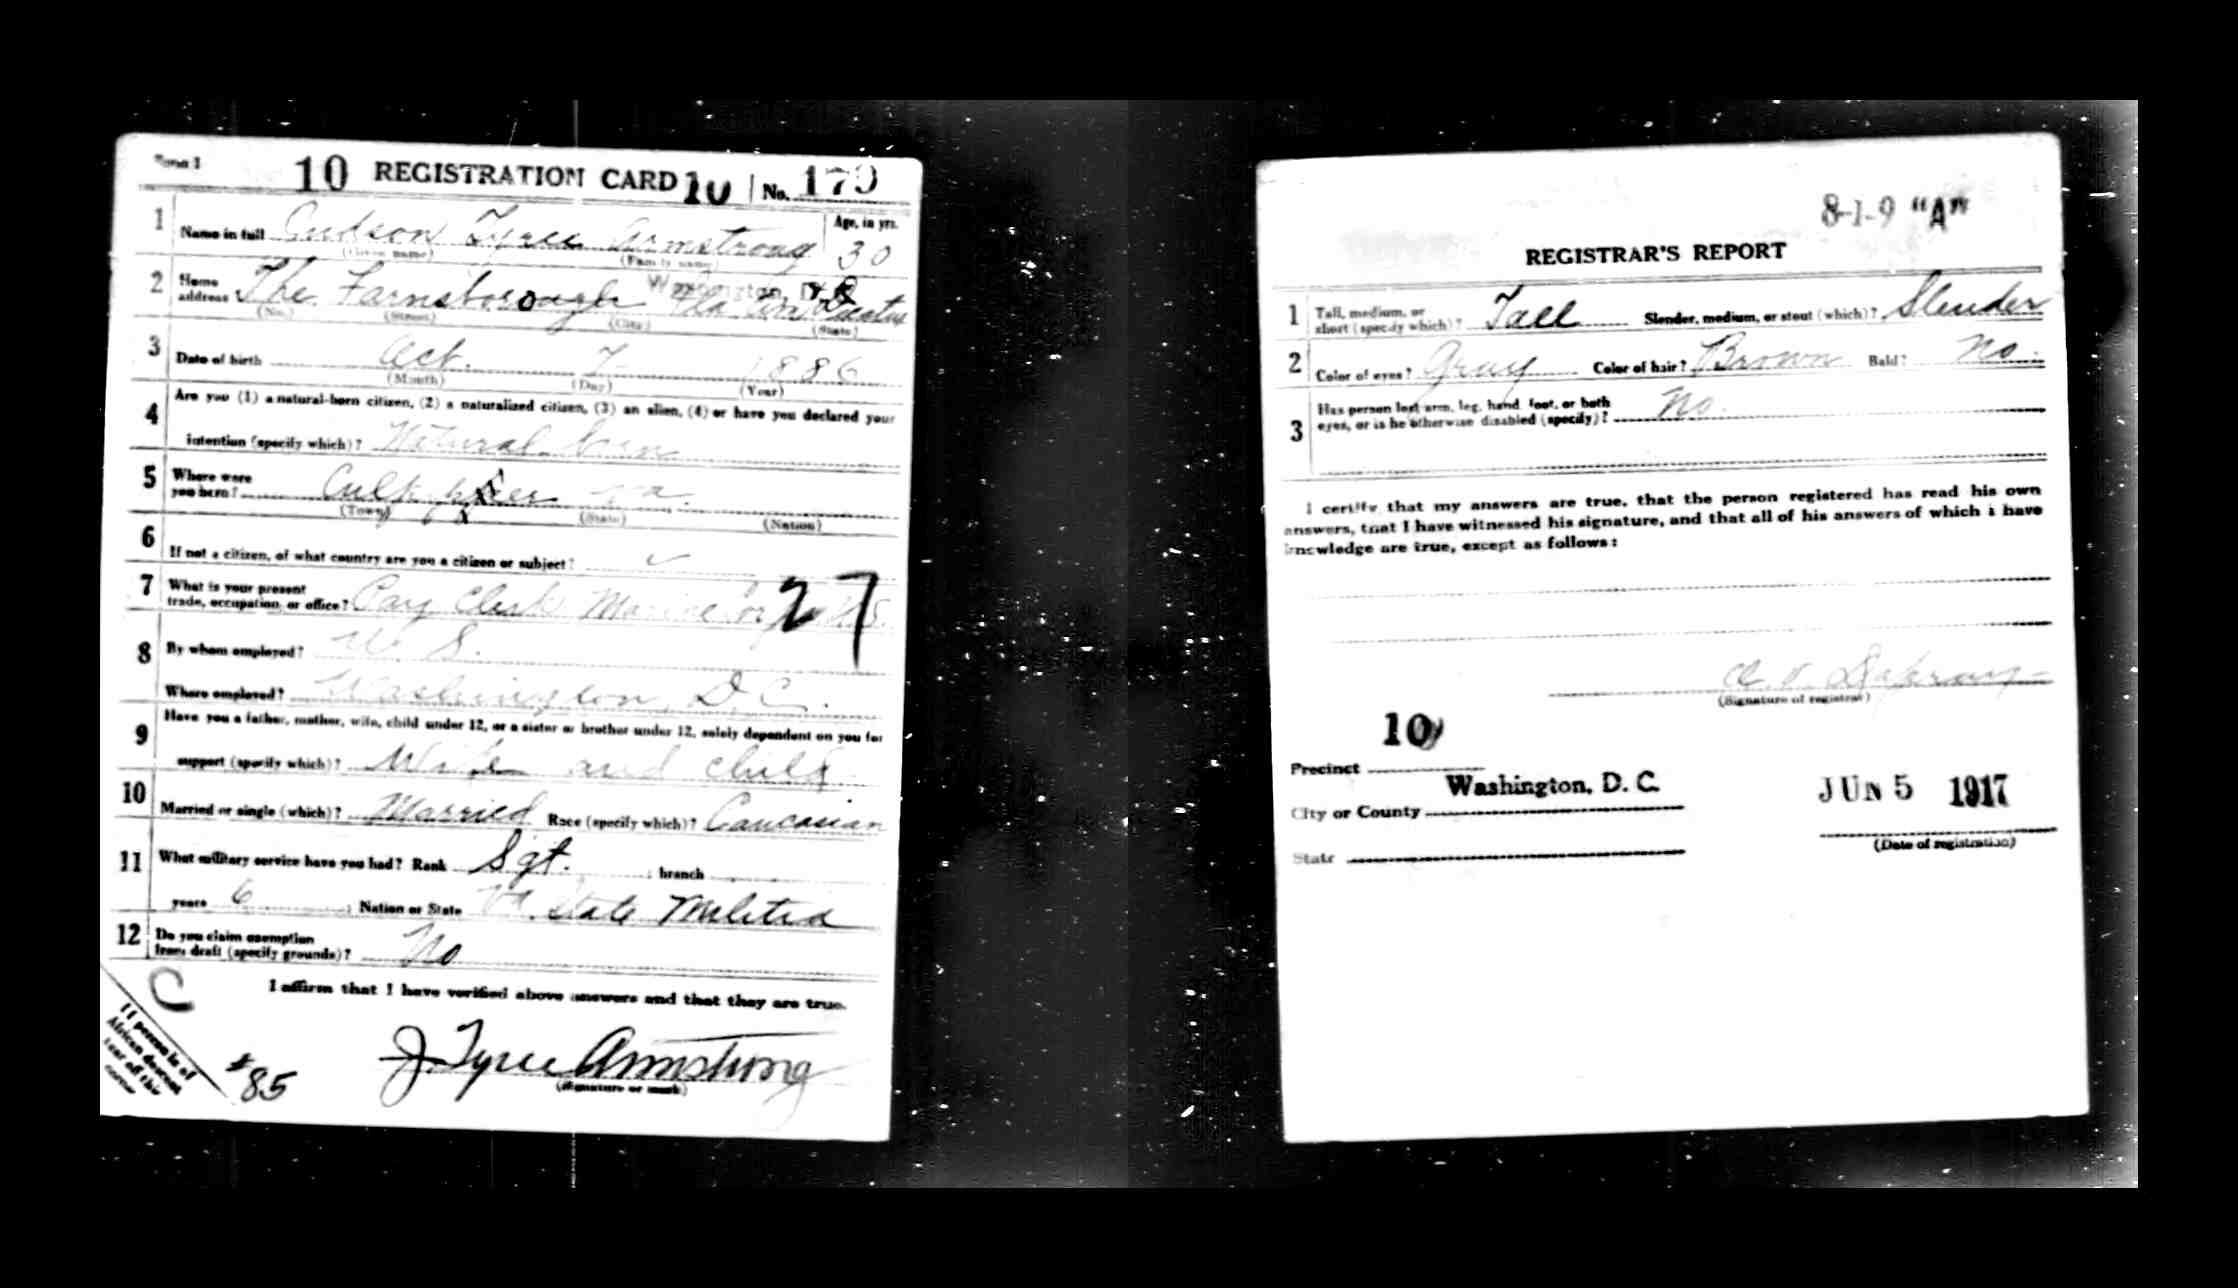 Form 1
10 REGISTRATION CARD 10 No. 179
1 Name in full Judson Tyree Armstrong Age, in yrs. 30
(Given name) (Family name)
Washington, D.C.
2 Home address The Farnsborough
(No.) (Street) (City) (State)
3 Date of birth Oct. 7 1886
(Month) (Day) (Year)
4 Are you (1) a natural-born citizen, (2) a naturalized citizen, (3) an alien, (4) or have you declared your
intention (specify which)? Natural born
5 Where were
you born? Culpeper Va.
(Town) (State) (Nation)
6 If not a citizen, of what country are you a citizen or subject?
7 What is your present
trade, occupation, or office? Pay Clerk Marine 27
8 By whom employed? U. S.
Where employed? Washington, D.C.
9 Have you a father, mother, wife, child under 12, or a sister or brother under 12, solely dependent on you for
support (specify which)? Wife and child
10 Married or single (which)? Married Race (specify which)? Caucasian
11 What military service have you had? Rank Sgt. ; branch
years 6 ; Nation or State Va. State Militia
12 Do you claim exemption
from draft (specify grounds)? No
C
I affirm that I have verified above answers and that they are true.
If person is of
African descent
tear off this
corner
#85
J. Tyree Armstrong
(Signature or mark)
8-1-9 "A"
REGISTRAR'S REPORT
1 Tall, medium, or
short (specify which)? Tall Slender, medium, or stout (which)? Slender
2 Color of eyes? Gray Color of hair? Brown Bald? No.
3 Has person lost arm, leg, hand, foot, or both
eyes, or is he otherwise disabled (specify)? No.
I certify that my answers are true, that the person registered has read his own
answers, that I have witnessed his signature, and that all of his answers of which I have
knowledge are true, except as follows:
(Signature of registrar)
10
Precinct
City or County Washington, D. C.
State
JUN 5 1917
(Date of registration)